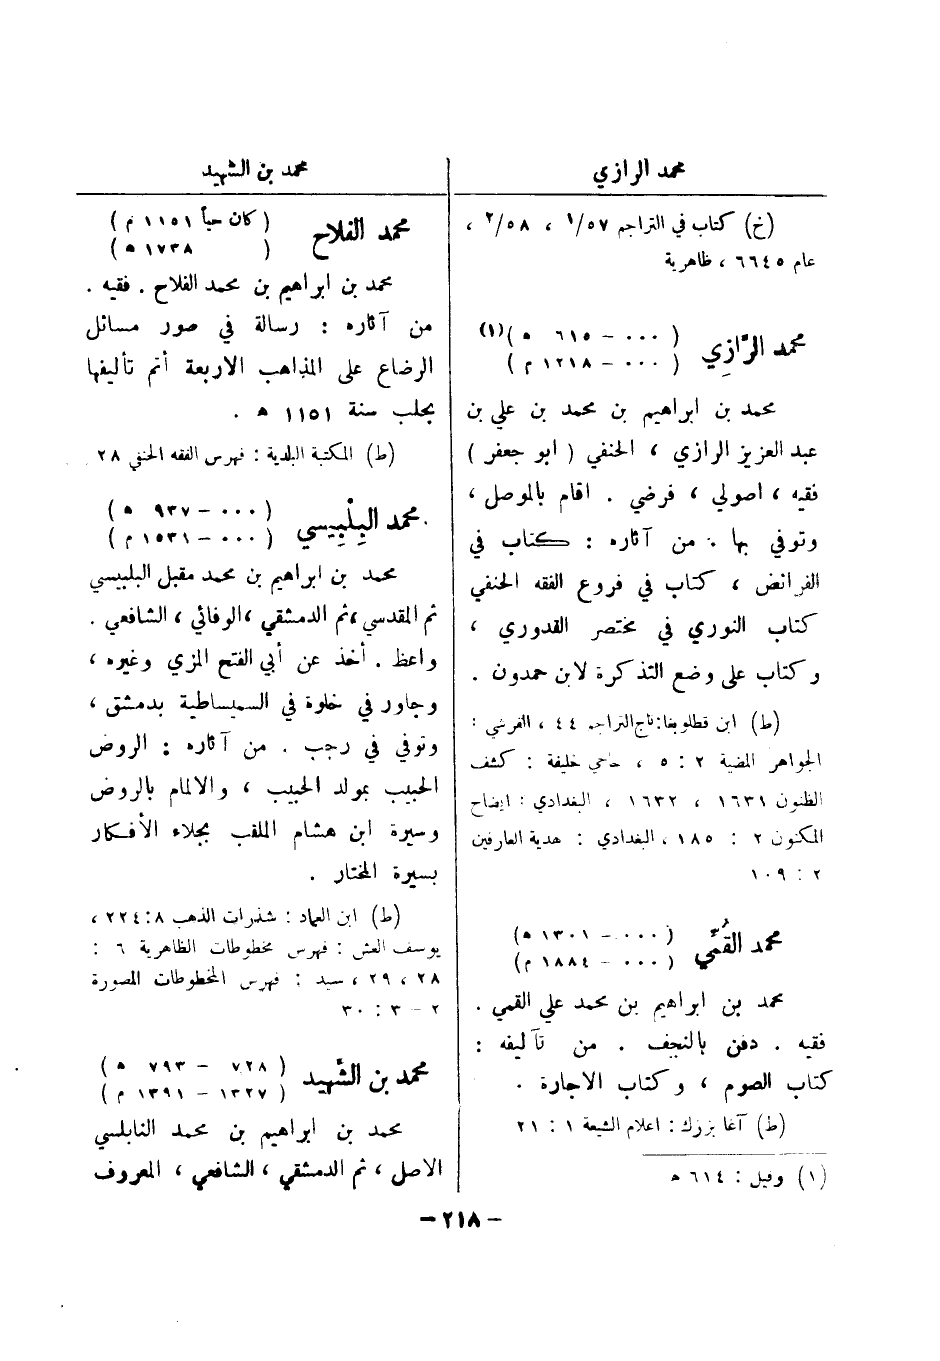 محمد الرازي
(خ) كتاب في التراجم ١/٥٧ ، ٢/٥٨ ،
عام ٦٦٤٥ ، ظاهرية
محمد الرَّازِي
( ٠٠٠ – ٦١٥ ه )(١)
( ٠٠٠ – ١٢١٨ م )
محمد بن ابراهيم بن محمد بن علي بن
عبد العزيز الرازي ، الحنفي ( ابو جعفر )
فقيه ، اصولي ، فرضي . اقام بالموصل ،
وتوفي بها . من آثاره : كتاب في
الفرائض ، كتاب في فروع الفقه الحنفي
كتاب النوري في مختصر القدوري ،
وكتاب على وضع التذكرة لابن حمدون .
(ط) ابن قطلوبغا : تاج التراجم ٤٤ ، القرشي :
الجواهر المضية ٢ : ٥ ، حاجي خليفة : كشف
الظنون ١٦٣١ ، ١٦٣٢ ، البغدادي : ايضاح
المكنون ٢ : ١٨٥ ، البغدادي : هدية العارفين
٢ : ١٠٩
محمد القُمِّي
( ٠٠٠ – ١٣٠١ ه )
( ٠٠٠ – ١٨٨٤ م )
محمد بن ابراهيم بن محمد علي القمي .
فقيه . دفن بالنجف . من تآليفه :
كتاب الصوم ، وكتاب الاجارة .
(ط) آغا بزرك : اعلام الشيعة ١ : ٢١
(١) وقيل : ٦١٤ ه
محمد بن الشهيد
محمد الفلاح
( كان حياً ١١٥١ م )
( ١٧٣٨ ه )
محمد بن ابراهيم بن محمد الفلاح . فقيه .
من آثاره : رسالة في صور مسائل
الرضاع على المذاهب الاربعة أتم تأليفها
بحلب سنة ١١٥١ ه .
(ط) المكتبة البلدية : فهرس الفقه الحنفي ٢٨
محمد البِلْبِيسي
( ٠٠٠ – ٩٣٧ ه )
( ٠٠٠ – ١٥٣١ م )
محمد بن ابراهيم بن محمد مقبل البلبيسي
ثم المقدسي ، ثم الدمشقي ، الوفائي ، الشافعي .
واعظ . أخذ عن أبي الفتح المزي وغيره ،
وجاور في خلوة في السميساطية بدمشق ،
وتوفي في رجب . من آثاره : الروض
الحبيب بمولد الحبيب ، والالمام بالروض
وسيرة ابن هشام الملقب بجلاء الأفكار
بسيرة المختار .
(ط) ابن العماد : شذرات الذهب ٨ : ٢٢٤ ،
يوسف العش : فهرس مخطوطات الظاهرية ٦ :
٢٨ ، ٢٩ ، سيد : فهرس المخطوطات المصورة
٢ – ٣ : ٣٠
محمد بن الشَّهيد
( ٧٢٨ – ٧٩٣ ه )
( ١٣٢٧ – ١٣٩١ م )
محمد بن ابراهيم بن محمد النابلسي
الاصل ، ثم الدمشقي ، الشافعي ، المعروف
– ٢١٨ –